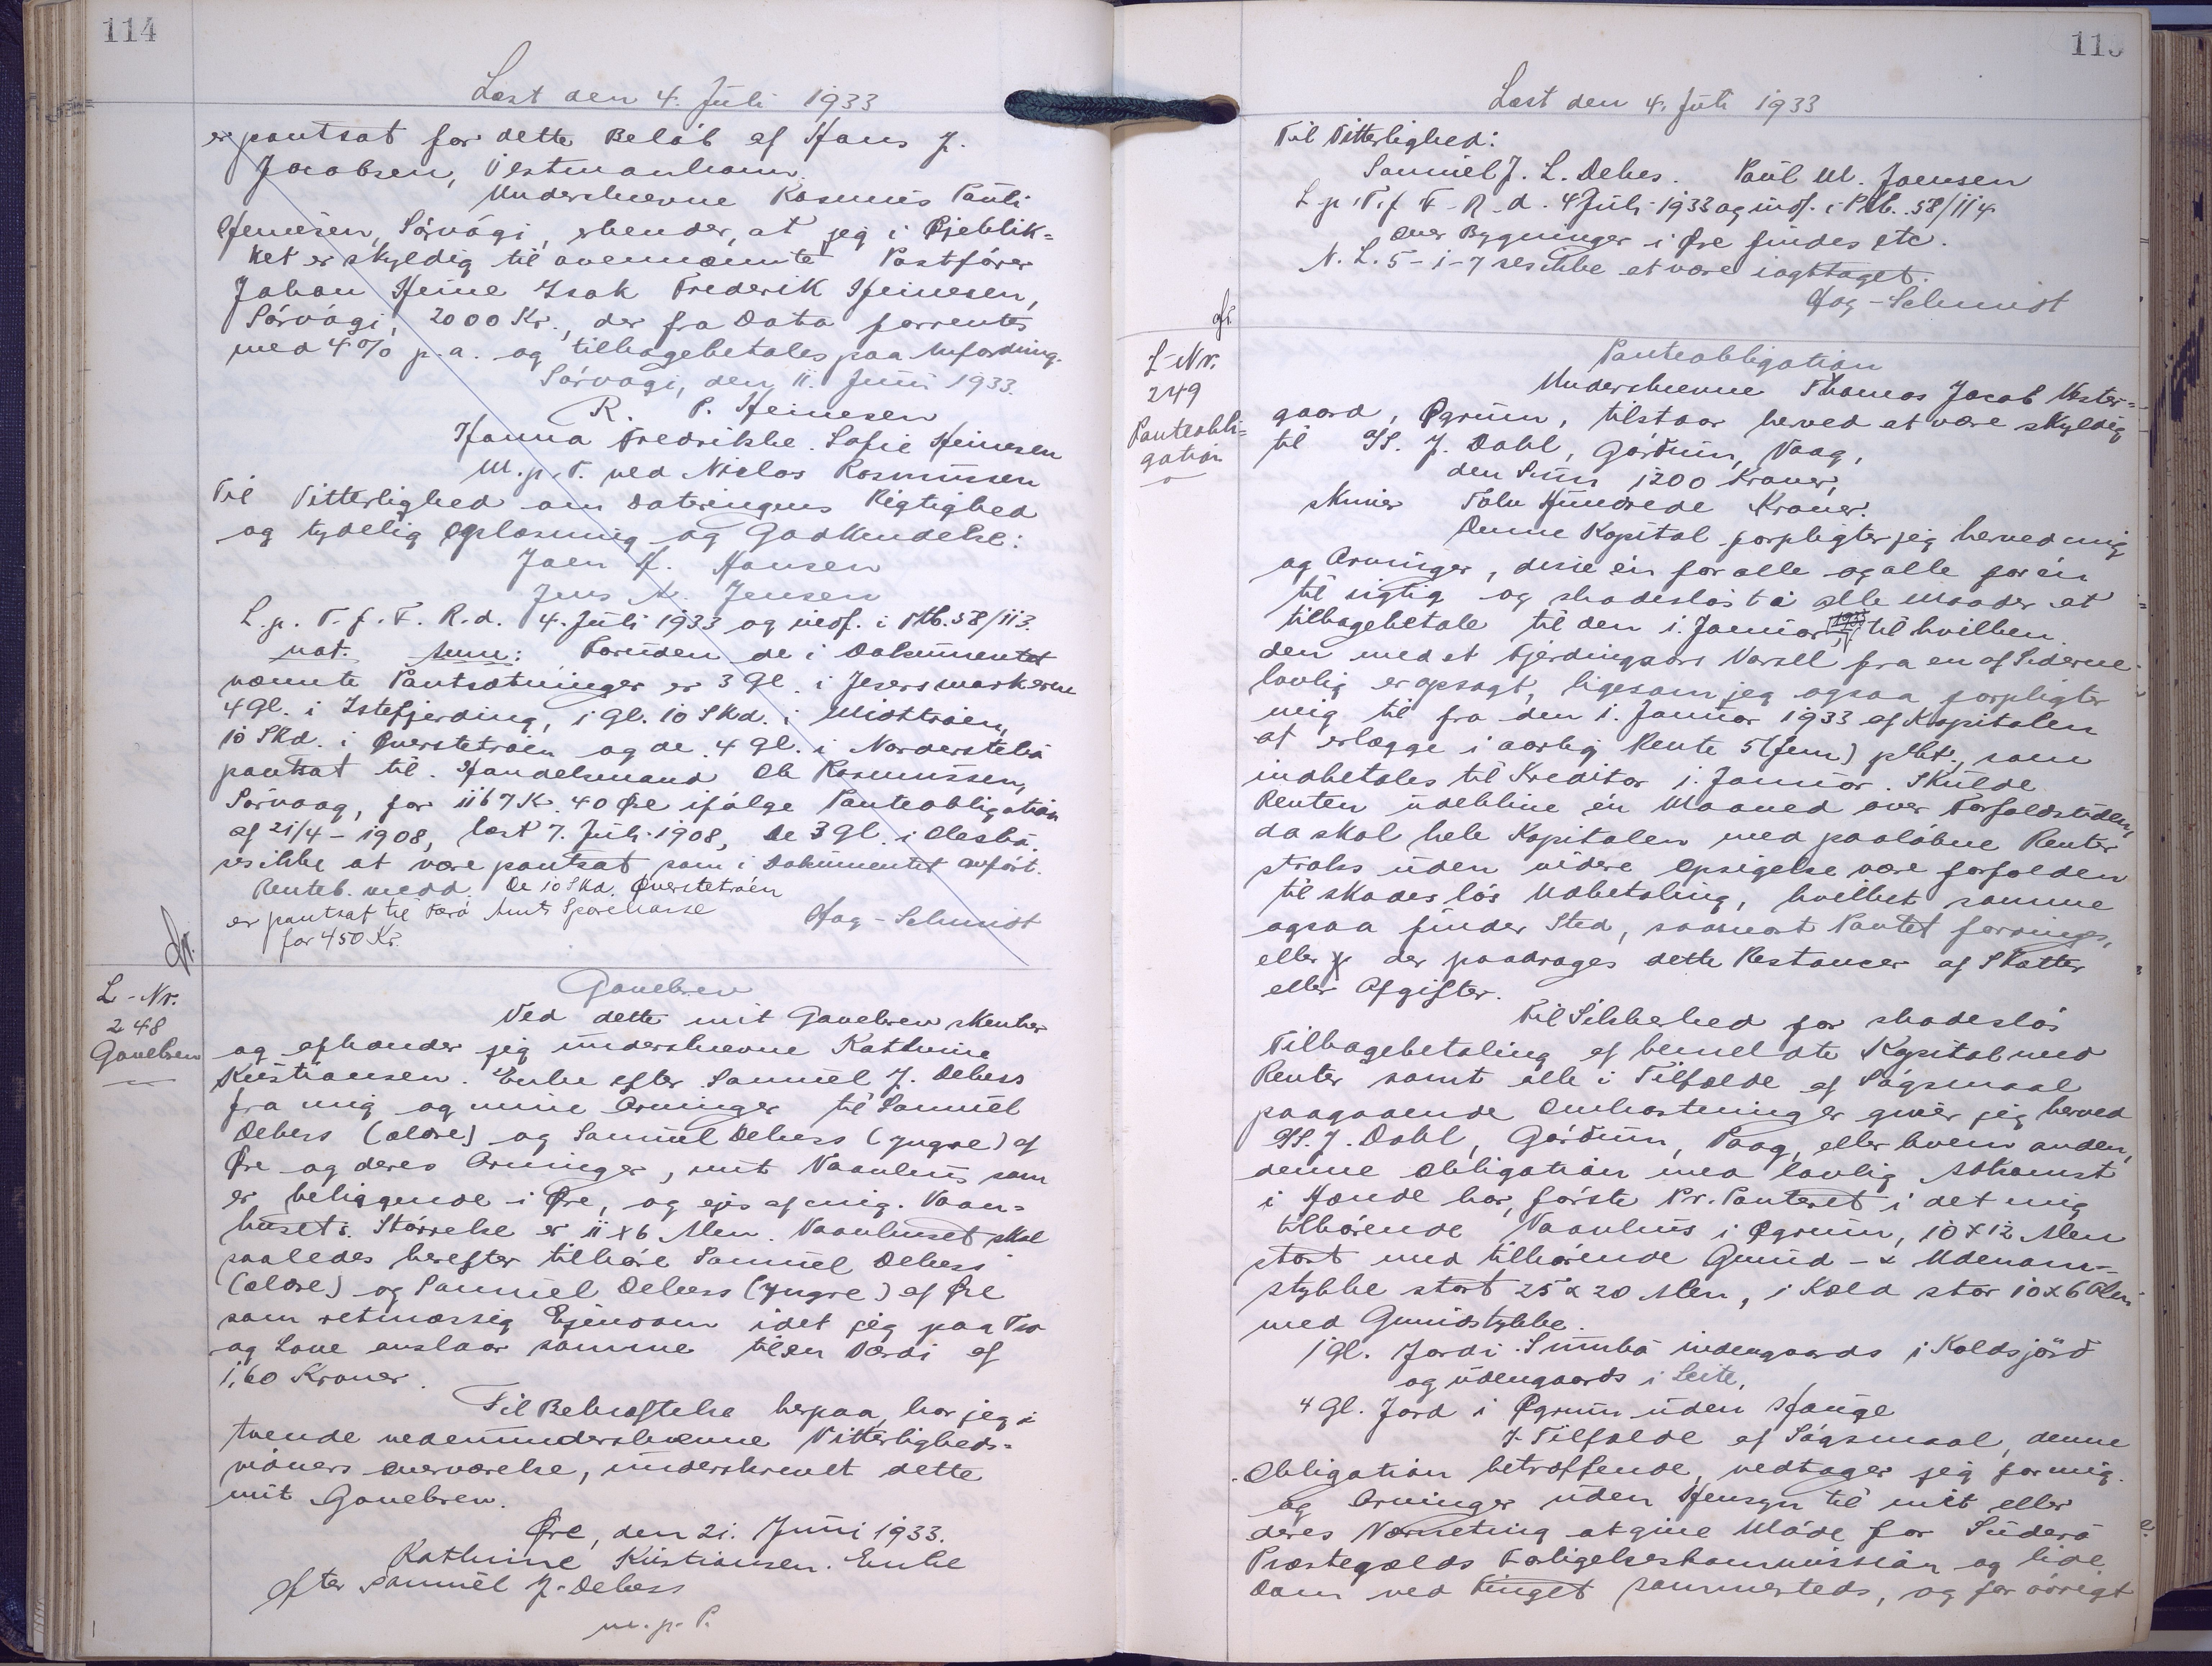 114
Læst den 4. Juli 1933
er pantsat for dette Beløb af Hans J.
Jacobsen, Vestmanhavn.
Underskrevne Rasmus Pauli
Heinesen, Sörvági, erkender, at jeg i Øjeblik=
ket er skyldig til ovennævnte Postfører
Johan Heine Isak Frederik Heinesen,
Sörvági, 2000 Kr., der fra Dato forrentes
med 4% p.a. og tilbagebetales paa Anfordring.
Sörvagi, den 11. Juni 1933.
R. P. Heinesen
Hanna Fredrikke Sofie Heinesen
M.p.P. ved Niclas Rasmussen
Til Vitterlighed om Dateringens Rigtighed
og tydelig Oplæsning og Godkendelse:
Joen H. Hansen
Jens A. Jensen
L. p. T. f. F. R. d. 4. Juli 1933 og indf. i Ptb. 58/113.
not. Anm: Foruden de i Dokumentet
nævnte Pantsætninger er 3 Gl. i Jesersmarkerne
4 Gl. i Istefjerding, 1 Gl. 10 Skd. i Midttröen,
10 Skd. i Øverstetröen og de 4 Gl. i Norderstebö
pantsat til Handelsmand Ole Rasmussen,
Sörvaag, for 1167 Kr. 40 Øre ifølge Panteobligation
af 21/4-1908, læst 7. Juli 1908, De 3 Gl. i Olesbö.
ses ikke at være pantsat som i Dokumentet anført.
Renteb. medd. De 10 Skd. Överstetröen
er pantsat til Færö Amts Sparekasse
for 450 Kr.
Hag-Schmidt
L-Nr.
248
Gavebrev
Gavebrev
Ved dette mit Gavebrev skenker
og afhænder jeg underskrevne Kathrine
Kristiansen. Enke efter Samuel J. Debess
fra mig og mine Arvinger til Samuel
Debess (ældre) og Samuel Debess (yngre) af
Øre og deres Arvinger, mit Vaanhus som
er beliggende i Øre, og ejes af mig. Vaan=
husets Störrelse er 11 x 6 Alen. Vaanhuset skal
saaledes herefter tilhøre Samuel Debess
(ældre) og Samuel Debess (yngre) af Øre
som retmæssig Ejendom idet jeg paa Tro
og Love anslaar samme til en Værdi af
160 Kroner.
Til Bekræftelse herpaa, har jeg i
tvende nedenunderskrevne Vitterligheds=
vidners overværelse, underskrevet dette
mit Gavebrev.
Øre, den 21. Juni 1933.
Kathrine Kristiansen. Enke
efter Samuel J. Debess
m. p. P.
115
Læst den 4. Juli 1933
Til Vitterlighed:
Samuel J. L. Debes. Paul M. Joensen
L. p. T. f. F. R. d. 4 Juli 1933 og indf. i Ptb. 58/114
Over Bygninger i Øre findes etc.
N. L. 5-1-7 ses ikke at være iagttaget.
Hag-Schmidt
L-Nr.
249
Panteobli=
gation
Panteobligation
Underskrevne Thomas Jacob Vester=
gaard, Øgrum, tilstaar herved at være skyldig
til SS. J. Dahl, Gördum, Vaag,
den Sum 1200 Kroner,
skriver Tolv Hundrede Kroner.
Denne Kapital forpligter jeg herved mig
og Arvinger, disse én for alle og alle for én
til rigtig og skadesløst i alle Maader at
tilbagebetale til den 1. Januar til hvilken
den med et Fjerdingaars Varsel fra en af Siderne
lovlig er opsagt, ligesom jeg ogsaa forpligter
mig til fra den 1. Januar 1933 af Kapitalen
at erlægge i aarlig Rente 5 (fem) pCt., som
indbetales til Kreditor 1. Januar. Skulde
Renten udeblive én Maaned over Forfaldstiden,
da skal hele Kapitalen med paaløbne Renter
straks uden videre Opsigelse være forfalden
til skadesløs Udbetaling, hvilket samme
ogsaa finder Sted, saasnart Pantet forringes,
eller der paadrages dette Restancer af Skatter
eller Afgifter.
Til Sikkerhed for skadesløs
Tilbagebetaling af bemeldte Kapital med
Renter samt alle i Tilfælde af Søgsmaal
paagaaende Omkostninger giver jeg herved
SS. J. Dahl, Gördum, Vaag, eller hvem anden,
denne Obligation med lovlig Adkomst
i Hænde har, første Pr. Panteret i det mig
tilhørende Vaanhus i Øgrum, 10 x 12 Alen
stort med tilhørende Grund- & Udenom=
stykke stort 25 x 20 Alen, 1 Kæld stor 10 x 6 Alen
med Grundstykke.
1 Gl. Jord i Sumbö indengaards i Koldsjörd
og udengaards i Leite,
4 Gl. Jord i Øgrum uden Hauge
I Tilfælde af Søgsmaal, denne
Obligation betræffende, vedtager jeg for mig
og Arvinger uden Hensyn til mit eller
deres Værneting at give Møde for Suderö
Præstegælds Forligelseskommission og lide
Dom ved Tinget sammesteds, og for øvrigt